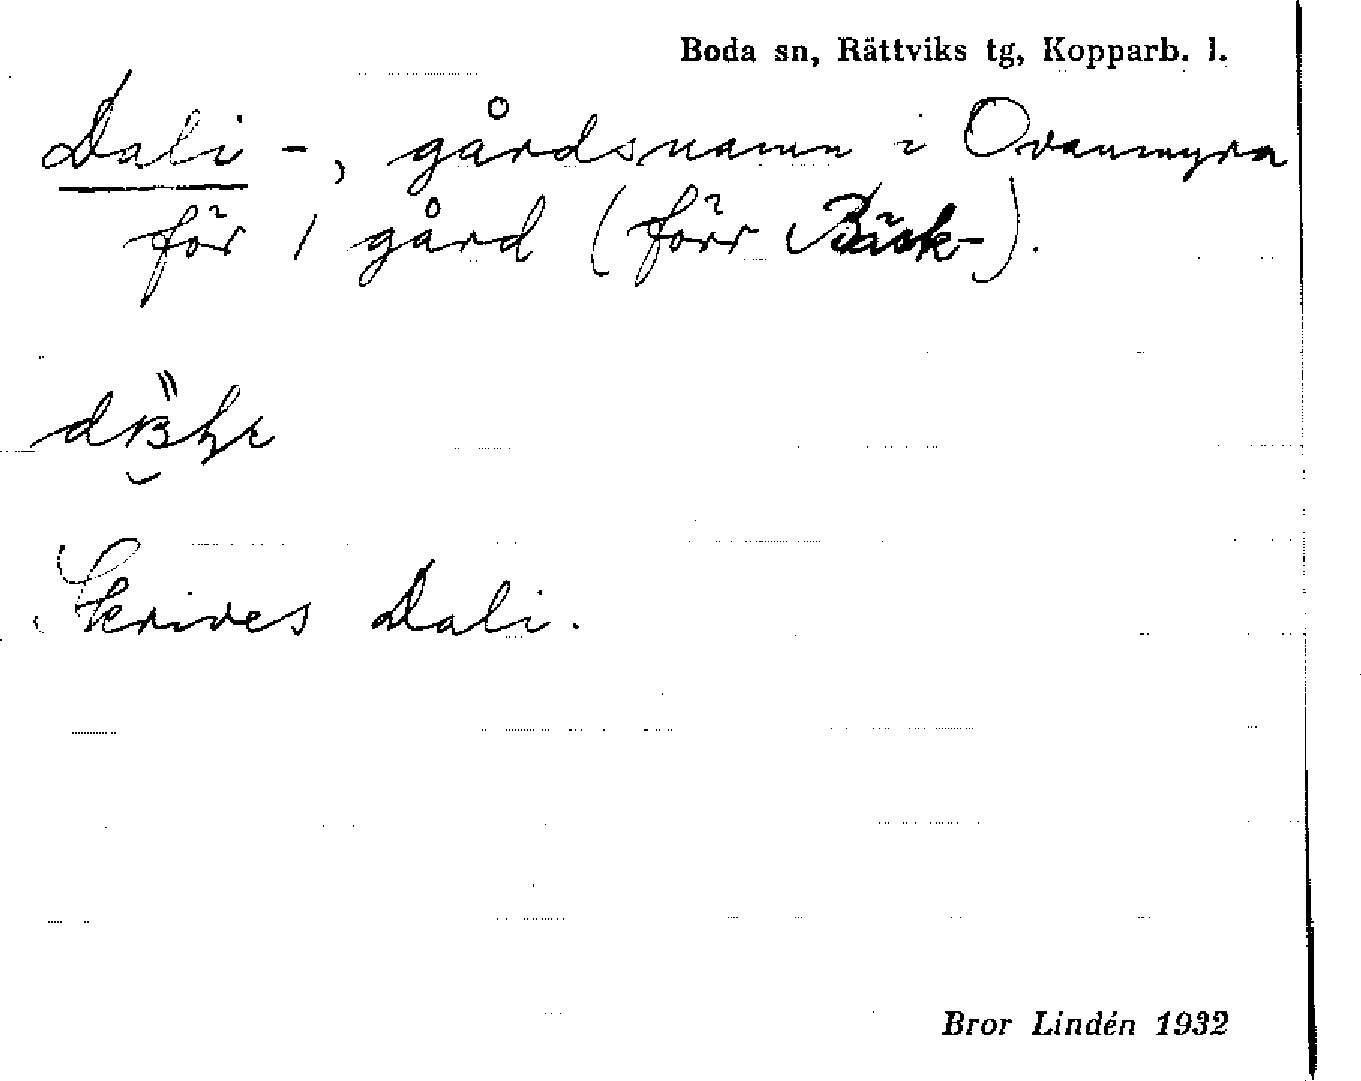 Boda sn, Rättviks tg, Kopparb. l.
Dali -, gårdsnamn i Ovanmyra
för 1 gård (förr Bäck-).
Skrives Dali.
Bror Lindén 1932